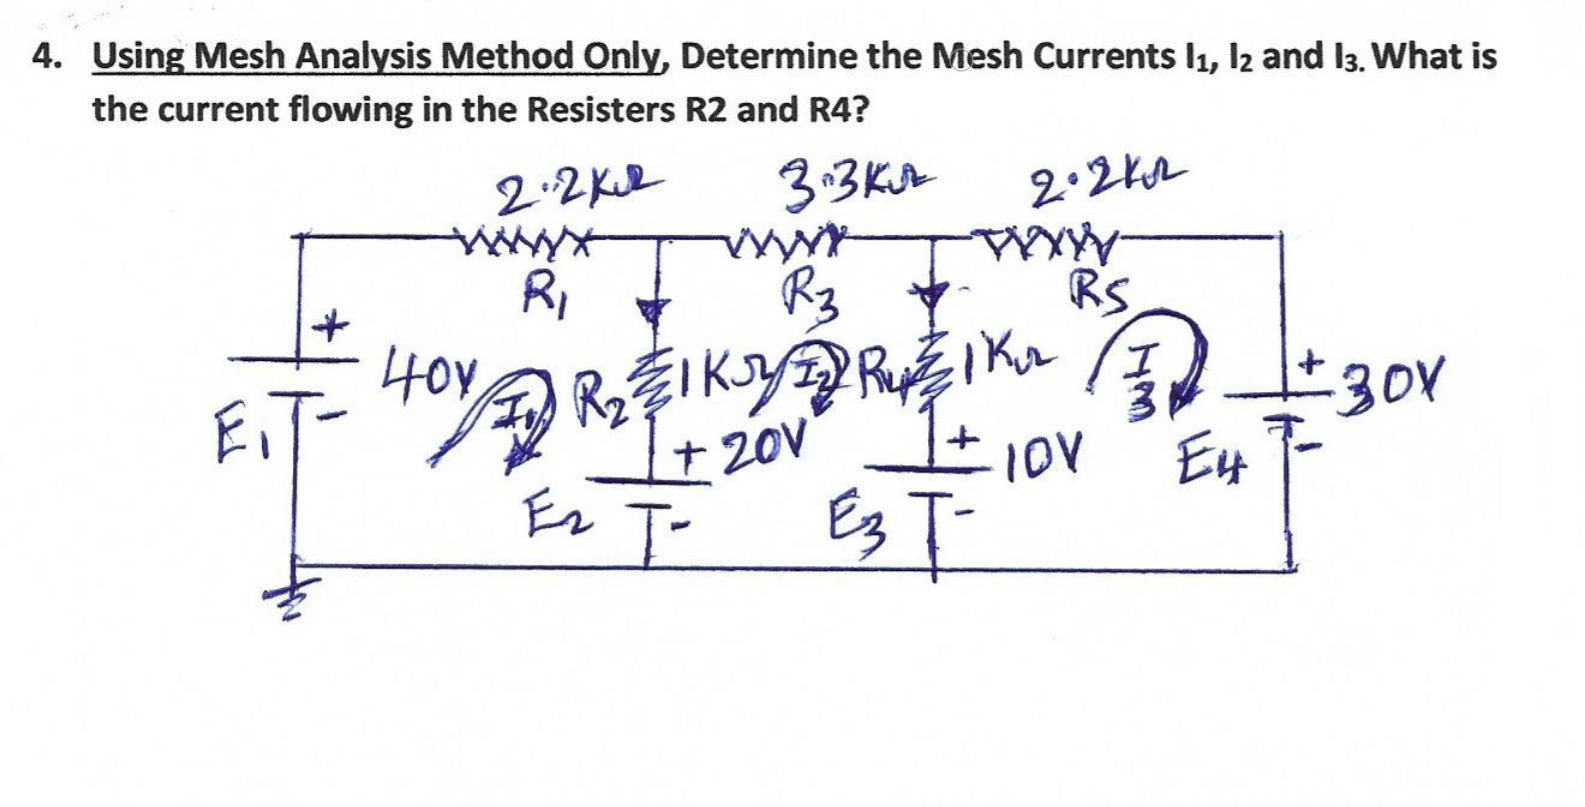 4. Using Mesh Analysis Method Only, Determine the Mesh Currents I₁, I₂ and I₃. What is
the current flowing in the Resisters R2 and R4?
2.2KΩ 3.3KΩ 2.2KΩ
R₁ R₃ R5
+ 40V I₁ R₂ 1KΩ I₂ R₄ 1KΩ I3 + 30V
E₁ - + 20V + 10V E4 -
E₂ - E₃ -